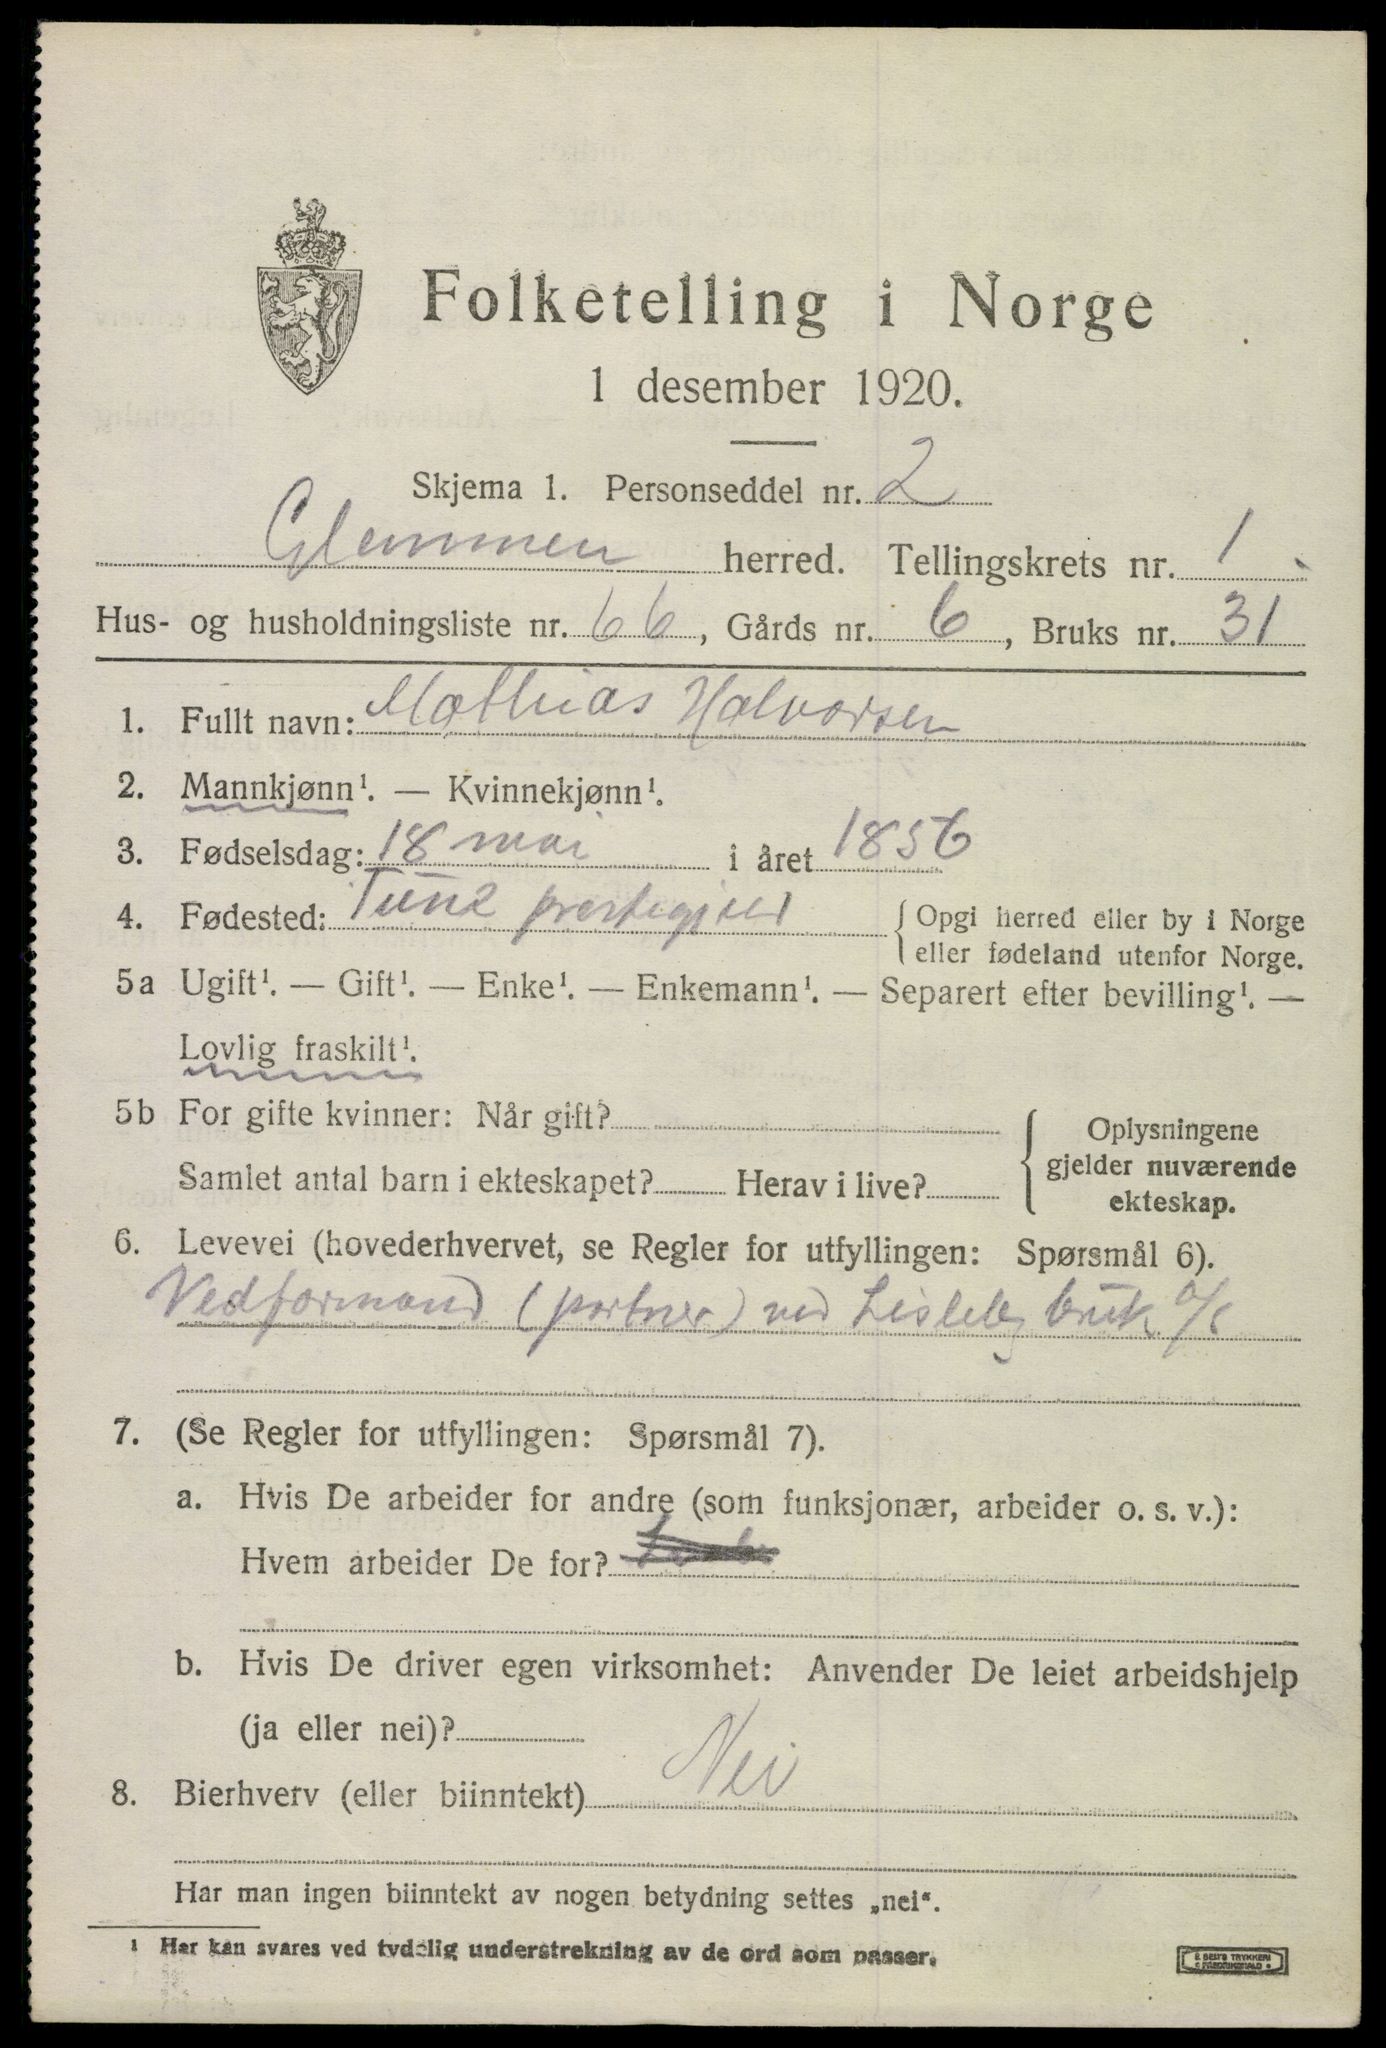 Folketelling i Norge
1 desember 1920.
Skjema 1. Personseddel nr. 2
Glemmen herred. Tellingskrets nr. 1
Hus- og husholdningsliste nr. 66, Gårds nr. 6, Bruks nr. 31
1. Fullt navn: Mathias Halvorsen
2. Mannkjønn¹. — Kvinnekjønn¹.
3. Fødselsdag: 18 mai i året 1856
4. Fødested: Tune prestegjeld { Opgi herred eller by i Norge
eller fødeland utenfor Norge.
5a Ugift¹. — Gift¹. — Enke¹. — Enkemann¹. — Separert efter bevilling¹. —
Lovlig fraskilt¹.
5b For gifte kvinner: Når gift?
Samlet antal barn i ekteskapet? Herav i live?
Oplysningene
gjelder nuværende
ekteskap.
6. Levevei (hovederhvervet, se Regler for utfyllingen: Spørsmål 6).
Vedformand (portner) ved Lisleby bruk A/S
7. (Se Regler for utfyllingen: Spørsmål 7).
a. Hvis De arbeider for andre (som funksjonær, arbeider o. s. v.):
Hvem arbeider De for?
b. Hvis De driver egen virksomhet: Anvender De leiet arbeidshjelp
(ja eller nei)?
8. Bierhverv (eller biinntekt) Nei
Har man ingen biinntekt av nogen betydning settes „nei“.
¹ Her kan svares ved tydelig understrekning av de ord som passer.